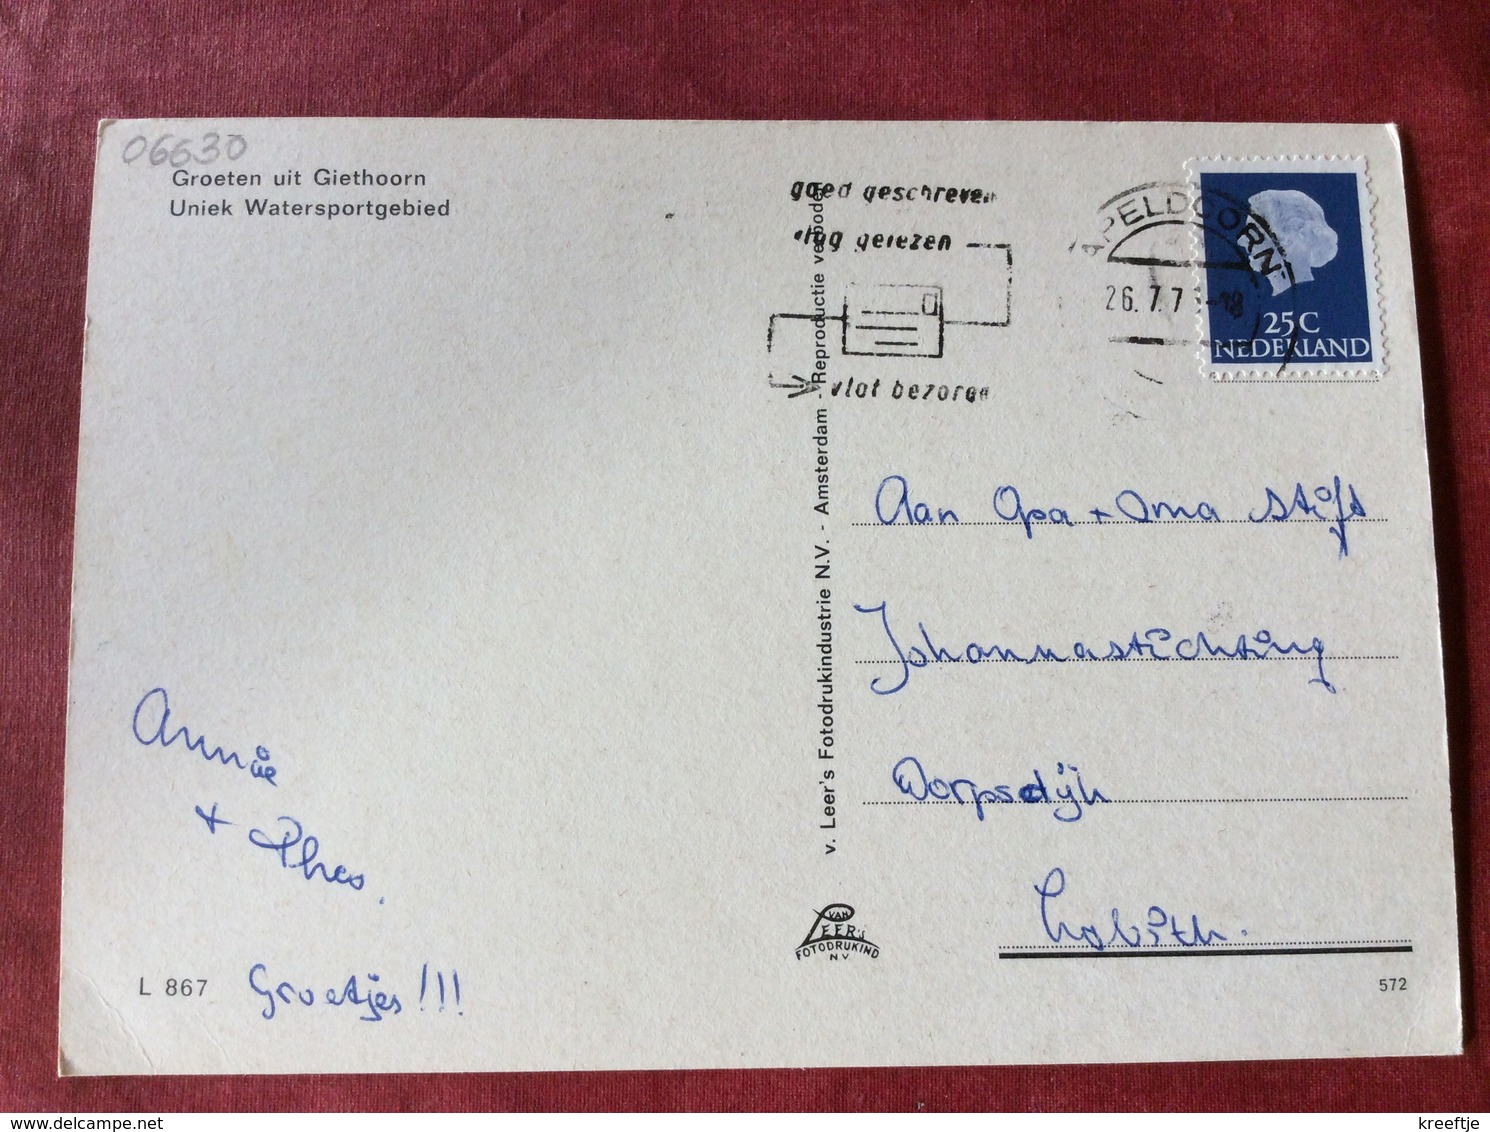 06630
Groeten uit Giethoorn
Uniek Watersportgebied
goed geschreven
vlug gelezen
vlot bezorgd
APELDOORN
26. 7. 7 -18
25C
NEDERLAND
v. Leer's Fotodrukindustrie N.V. - Amsterdam - Reproductie verboden
Aan Opa + Oma Stift
Johannastichting
Dorpsdijk
Lobith.
Annie
+ Theo.
Groetjes !!!
VAN
LEER's
FOTODRUKIND
N V
L 867
572
kreeftje